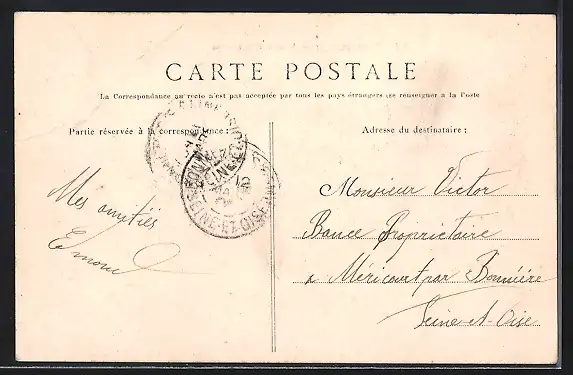 CARTE POSTALE
La Correspondance au recto n'est pas acceptée par tous les pays étrangers (se renseigner à la Poste
Partie réservée à la correspondance:
Adresse du destinataire:
Mes amitiés
Edmond
Monsieur Victor
Bance Propriétaire
à Méricourt par Bonnière
Seine-et-Oise
SEINE-ET-OISE